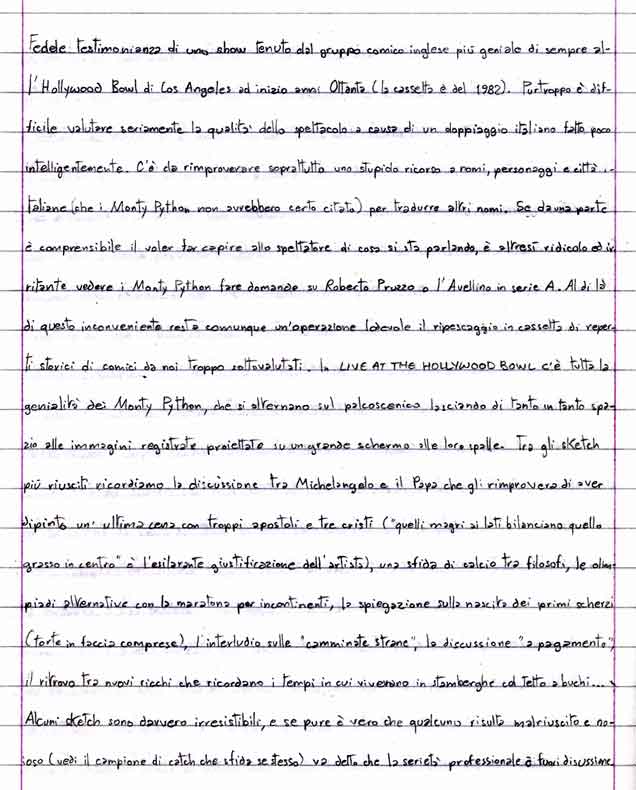 Fedele testimonianza di uno show tenuto dal gruppo comico inglese più geniale di sempre al-
l'Hollywood Bowl di Los Angeles ad inizio anni Ottanta (la cassetta è del 1982). Purtroppo è dif-
ficile valutare seriamente la qualità dello spettacolo a causa di un doppiaggio italiano fatto poco
intelligentemente. C'è da rimproverare soprattutto uno stupido ricorso a nomi, personaggi e città i-
taliane (che i Monty Python non avrebbero certo citato) per tradurre altri nomi. Se da una parte
è comprensibile il voler far capire allo spettatore di cosa si sta parlando, è altresì ridicolo ed ir
ritante vedere i Monty Python fare domande su Roberto Pruzzo o l'Avellino in serie A. Al di là
di questo inconveniente resta comunque un'operazione lodevole il ripescaggio in cassetta di reper-
ti storici di comici da noi troppo sottovalutati. In LIVE AT THE HOLLYWOOD BOWL c'è tutta la
genialità dei Monty Python, che si alternano sul palcoscenico lasciando di tanto in tanto spa-
zio alle immagini registrate proiettate su un grande schermo alle loro spalle. Tra gli sketch
più riusciti ricordiamo la discussione tra Michelangelo e il Papa che gli rimprovera di aver
dipinto un'ultima cena con troppi apostoli e tre cristi ("quelli magri ai lati bilanciano quello
grasso in centro" è l'esilarante giustificazione dell'artista), una sfida di calcio tra filosofi, le olim-
piadi alternative con la maratona per incontinenti, la spiegazione sulla nascita dei primi scherzi
(torte in faccia comprese), l'interludio sulle "camminate strane", la discussione "a pagamento",
il ritrovo tra nuovi ricchi che ricordano i tempi in cui vivevano in stamberghe col tetto a buchi....
Alcuni sketch sono davvero irresistibili, e se pure è vero che qualcuno risulta malriuscito e no-
ioso (vedi il campione di catch che sfida se stesso) va detto che la serietà professionale è fuori discussione